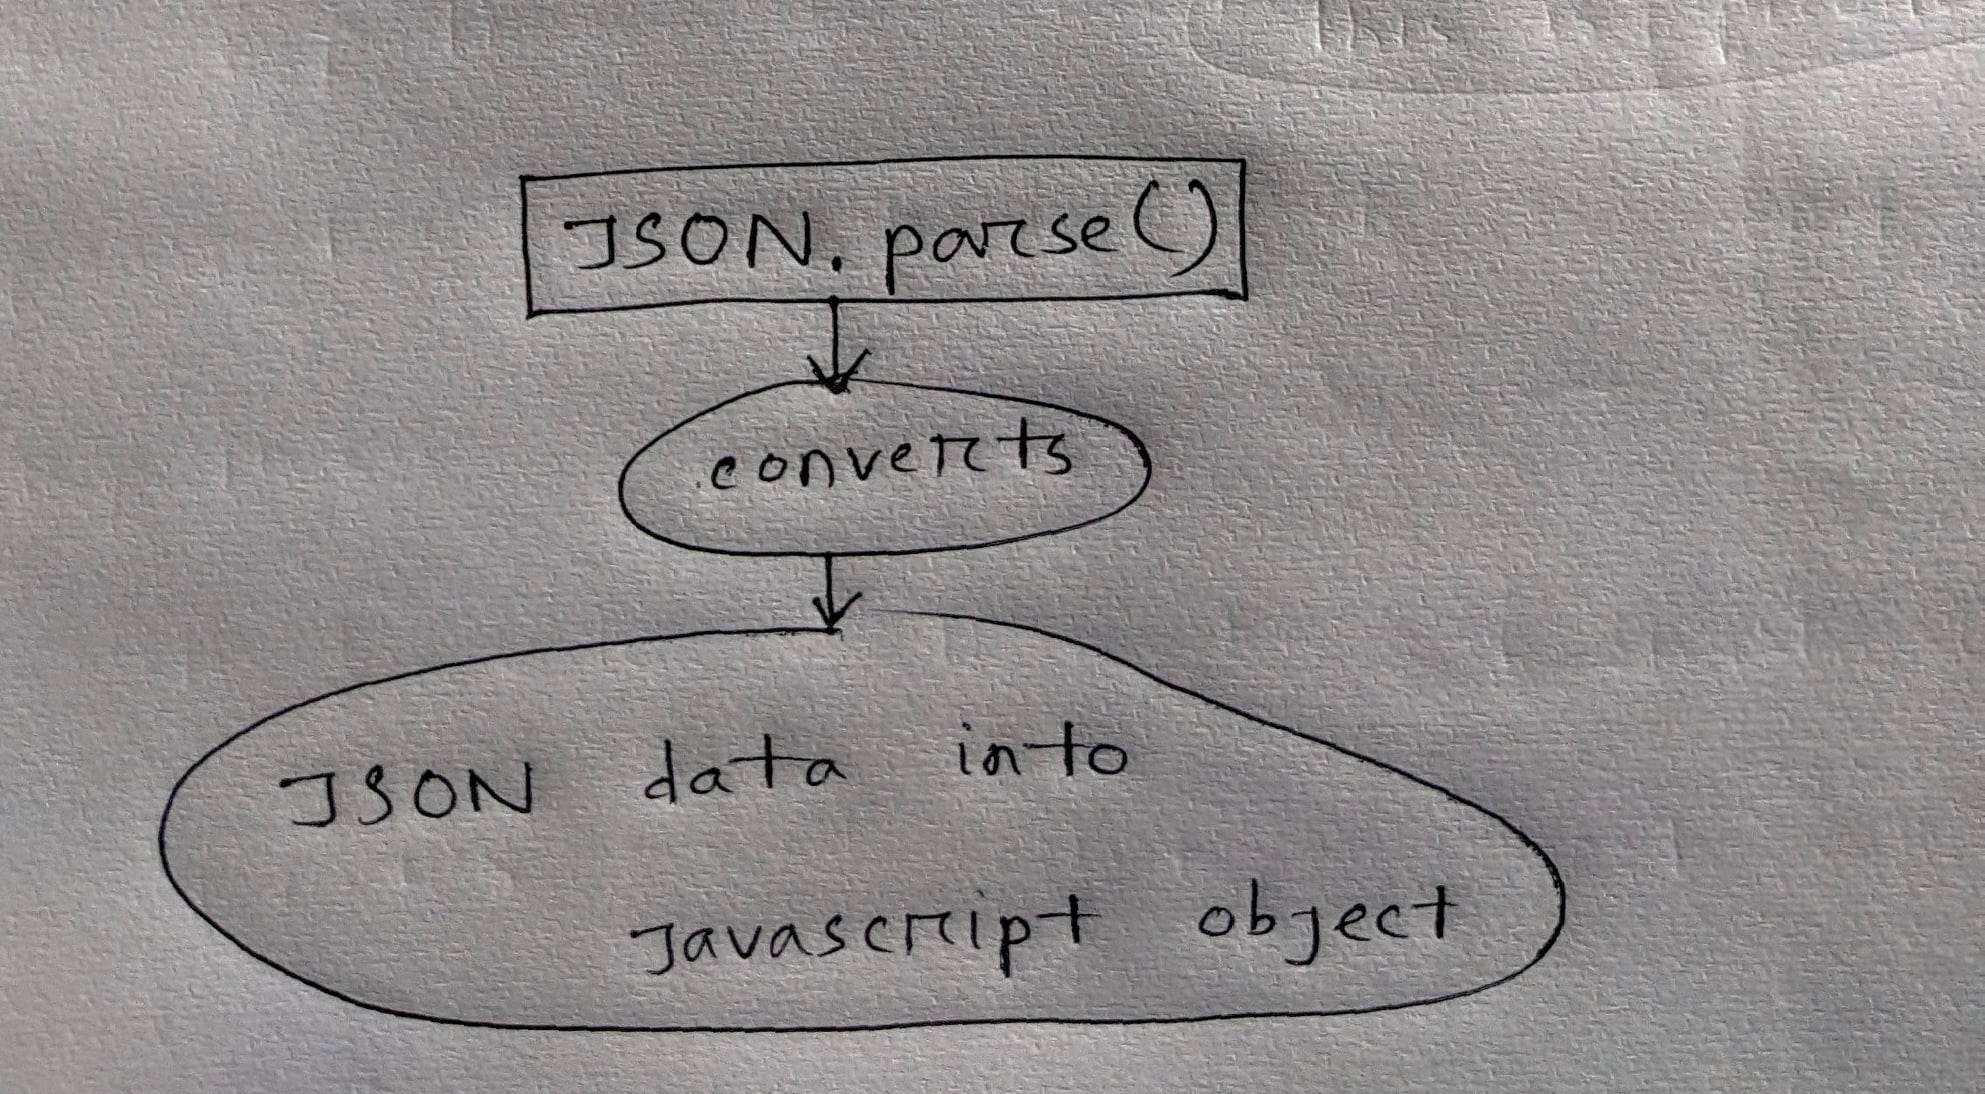 JSON. parse()
converts
JSON data into
Javascript object